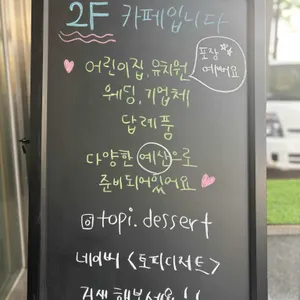 2F 카페입니다
포장
예뻐요
어린이집, 유치원
웨딩, 기업체
답례품
다양한 예산으로
준비되어있어요
@topi.dessert
네이버 <토피디저트>
검색해보세요!!